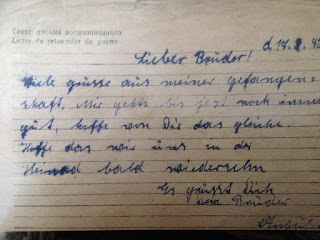 Текст письма военнопленного
Lettre du prisonnier de guerre
d. 14.
Lieber Brüder!
Viele grüsse aus meiner gefangen=
schaft. Mir gehts bis jezt noch immer
gut, hoffe von Dir das gleiche.
Hoffe das wir uns in der
Heimad bald wiedersehn
Es grüsst Dich
dein Brüder